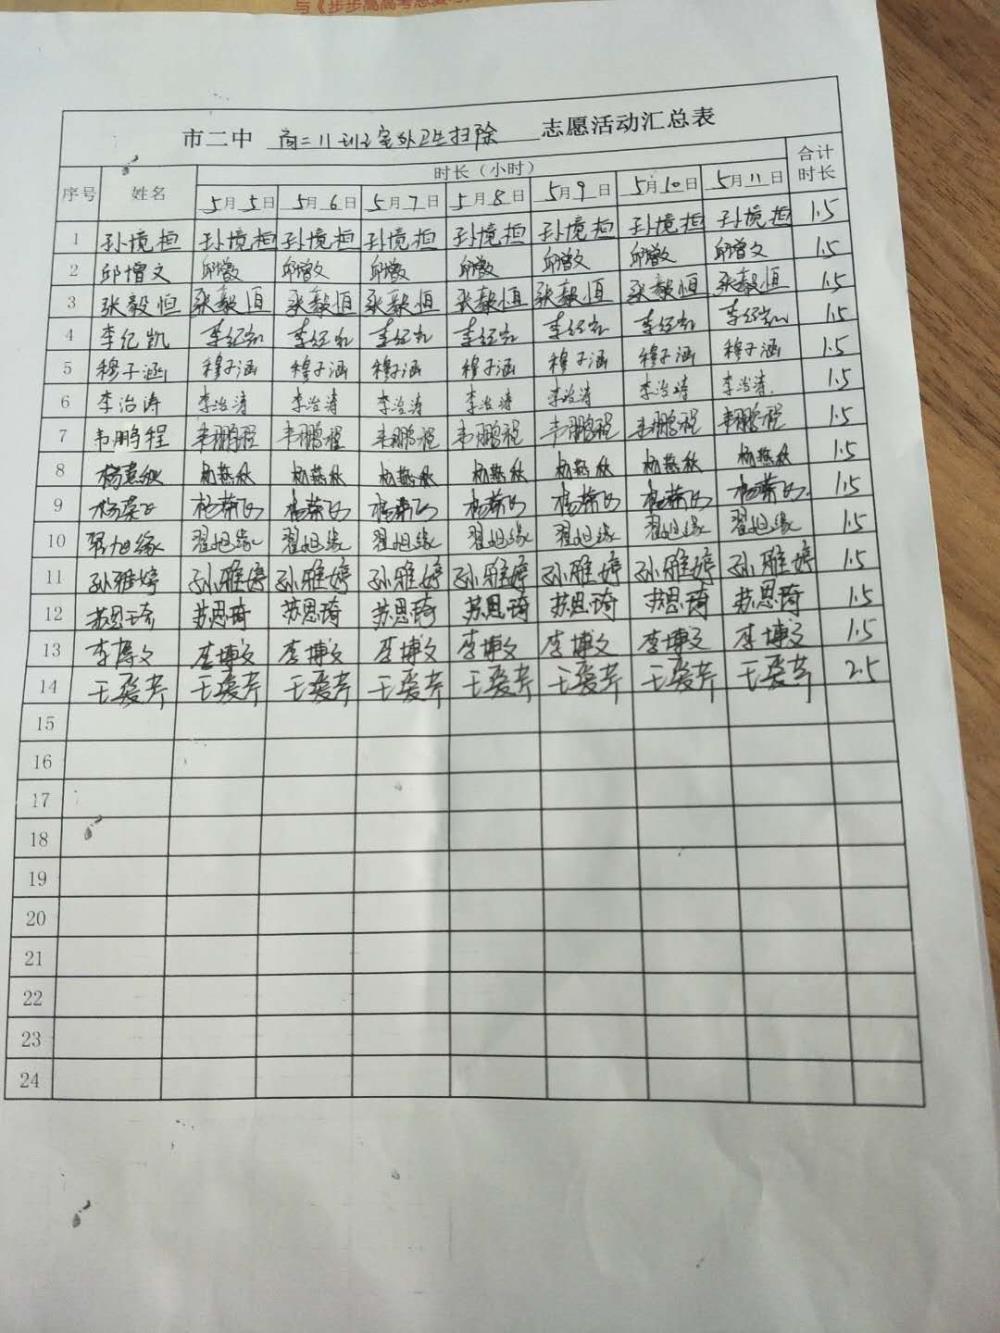 与《步步高高考总复习
市二中 高二11班室外卫生扫除 志愿活动汇总表
序号 姓名 时长（小时） 合计时长
5月5日 5月6日 5月7日 5月8日 5月9日 5月10日 5月11日
1 孙境担 孙境担 孙境担 孙境担 孙境担 孙境担 孙境担 孙境担 1.5
2 邱增文 邱增文 邱增文 邱增文 邱增文 邱增文 邱增文 邱增文 1.5
3 张毅恒 张毅恒 张毅恒 张毅恒 张毅恒 张毅恒 张毅恒 张毅恒 1.5
4 李纪凯 李纪凯 李纪凯 李纪凯 李纪凯 李纪凯 李纪凯 李纪凯 1.5
5 穆子涵 穆子涵 穆子涵 穆子涵 穆子涵 穆子涵 穆子涵 穆子涵 1.5
6 李治涛 李治涛 李治涛 李治涛 李治涛 李治涛 李治涛 李治涛 1.5
7 韦鹏程 韦鹏程 韦鹏程 韦鹏程 韦鹏程 韦鹏程 韦鹏程 韦鹏程 1.5
8 1.5
9 1.5
10 翟旭缘 翟旭缘 翟旭缘 翟旭缘 翟旭缘 翟旭缘 翟旭缘 翟旭缘 1.5
11 孙雅婷 孙雅婷 孙雅婷 孙雅婷 孙雅婷 孙雅婷 孙雅婷 孙雅婷 1.5
12 苏思琦 苏思琦 苏思琦 苏思琦 苏思琦 苏思琦 苏思琦 苏思琦 1.5
13 李博文 李博文 李博文 李博文 李博文 李博文 李博文 李博文 1.5
14 王爱芹 王爱芹 王爱芹 王爱芹 王爱芹 王爱芹 王爱芹 王爱芹 2.5
15
16
17
18
19
20
21
22
23
24